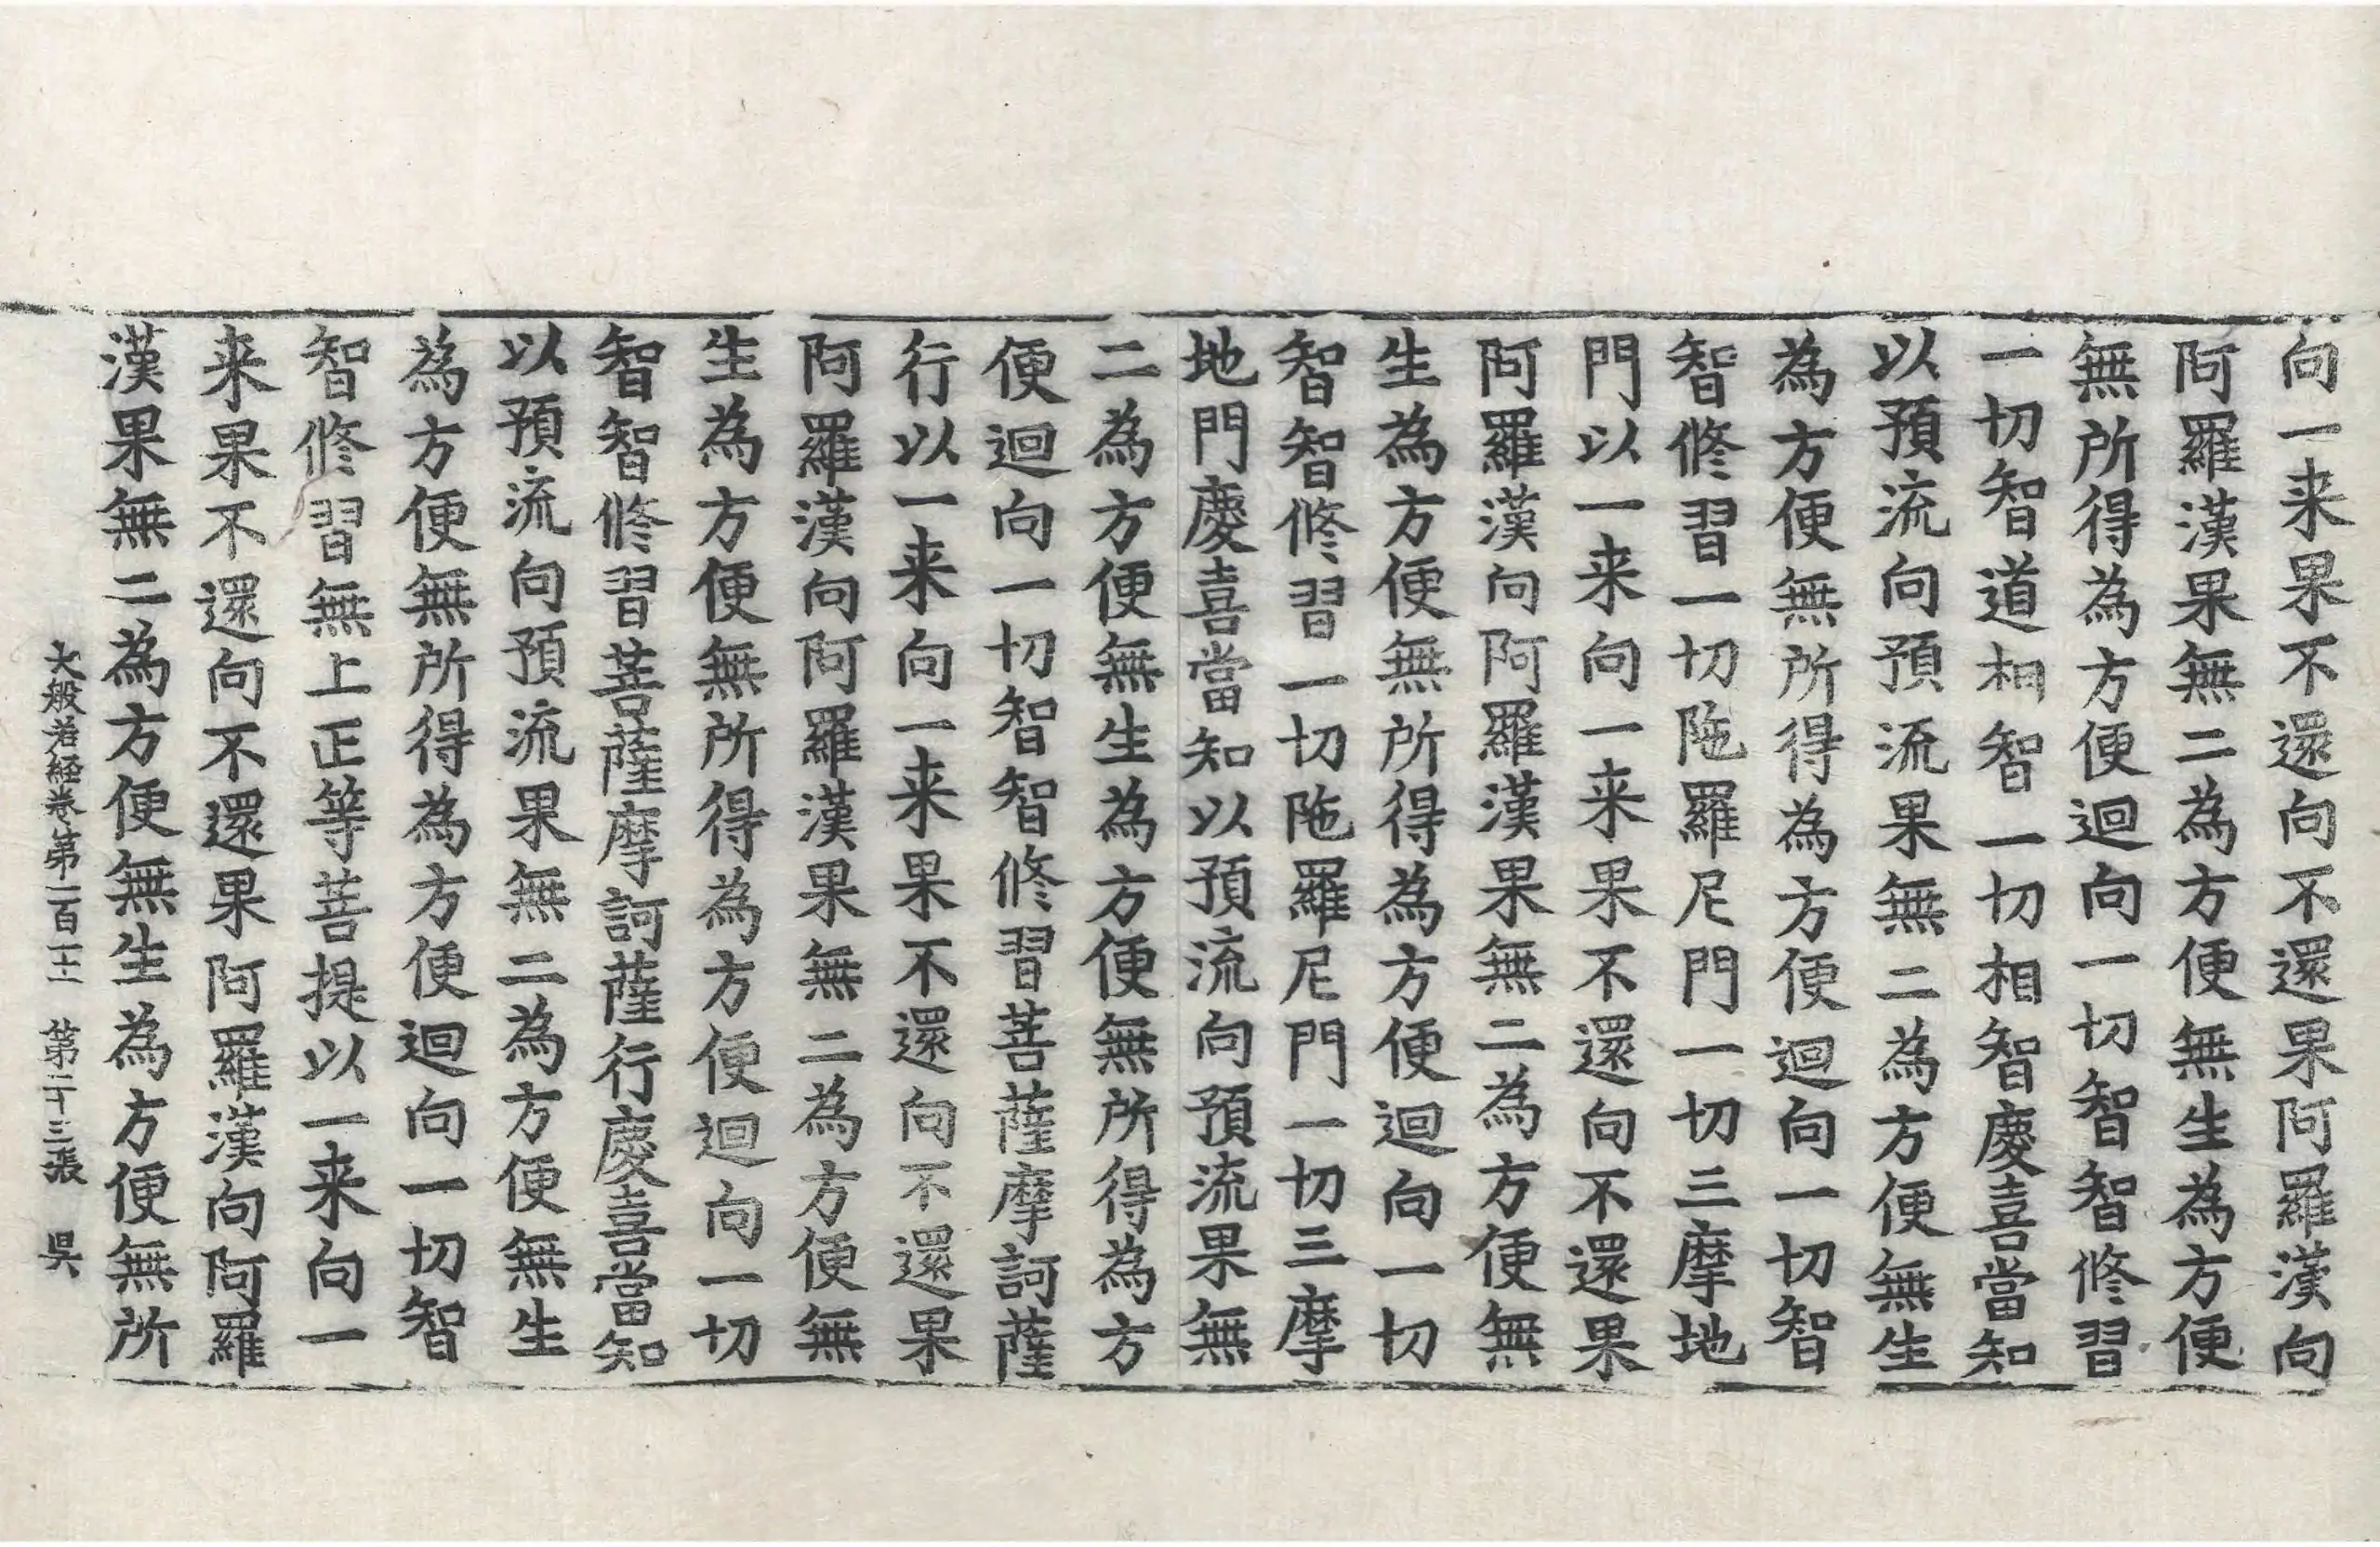 向一来果不還向不還果阿羅漢向
阿羅漢果無二為方便無生為方便
無所得為方便迴向一切智智修習
一切智道相智一切相智慶喜當知
以預流向預流果無二為方便無生
為方便無所得為方便迴向一切智
智修習一切陁羅尼門一切三摩地
門以一来向一来果不還向不還果
阿羅漢向阿羅漢果無二為方便無
生為方便無所得為方便迴向一切
智智修習一切陁羅尼門一切三摩
地門慶喜當知以預流向預流果無
二為方便無生為方便無所得為方
便迴向一切智智修習菩薩摩訶薩
行以一来向一来果不還向不還果
阿羅漢向阿羅漢果無二為方便無
生為方便無所得為方便迴向一切
智智修習菩薩摩訶薩行慶喜當知
以預流向預流果無二為方便無生
為方便無所得為方便迴向一切智
智修習無上正等菩提以一来向一
来果不還向不還果阿羅漢向阿羅
漢果無二為方便無生為方便無所
大般若経卷第一百一十二 第二十三張 昃